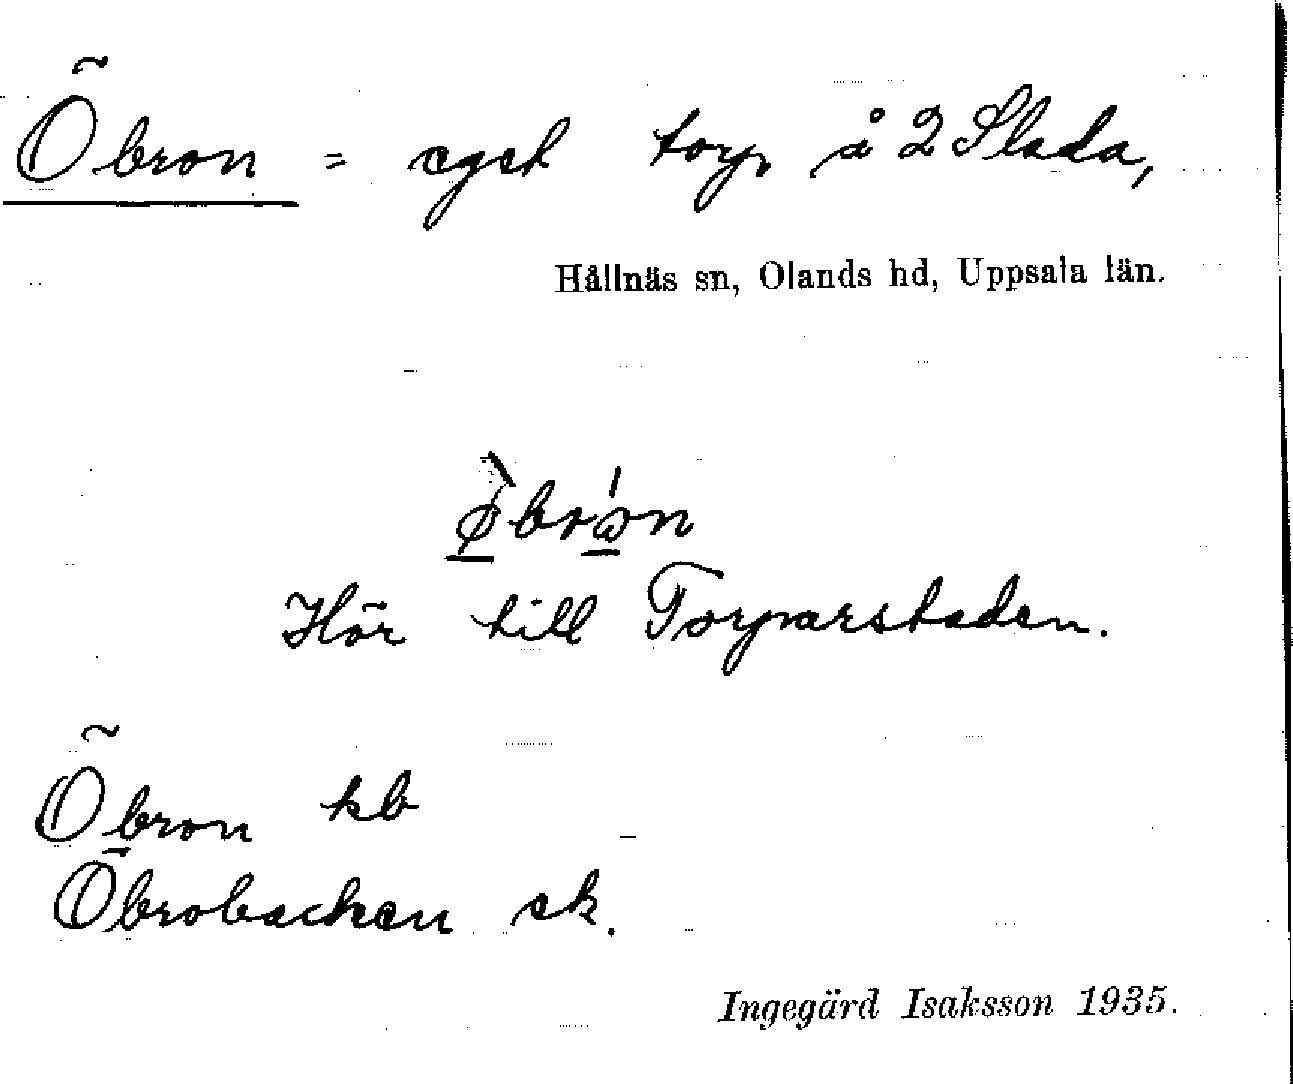 Öbron = eget torp å 2 Slada,
Hållnäs sn, Olands hd, Uppsala län.
Hör till Torparstaden.
Öbron kb
Öbrobacken ek.
Ingegärd Isaksson 1935.